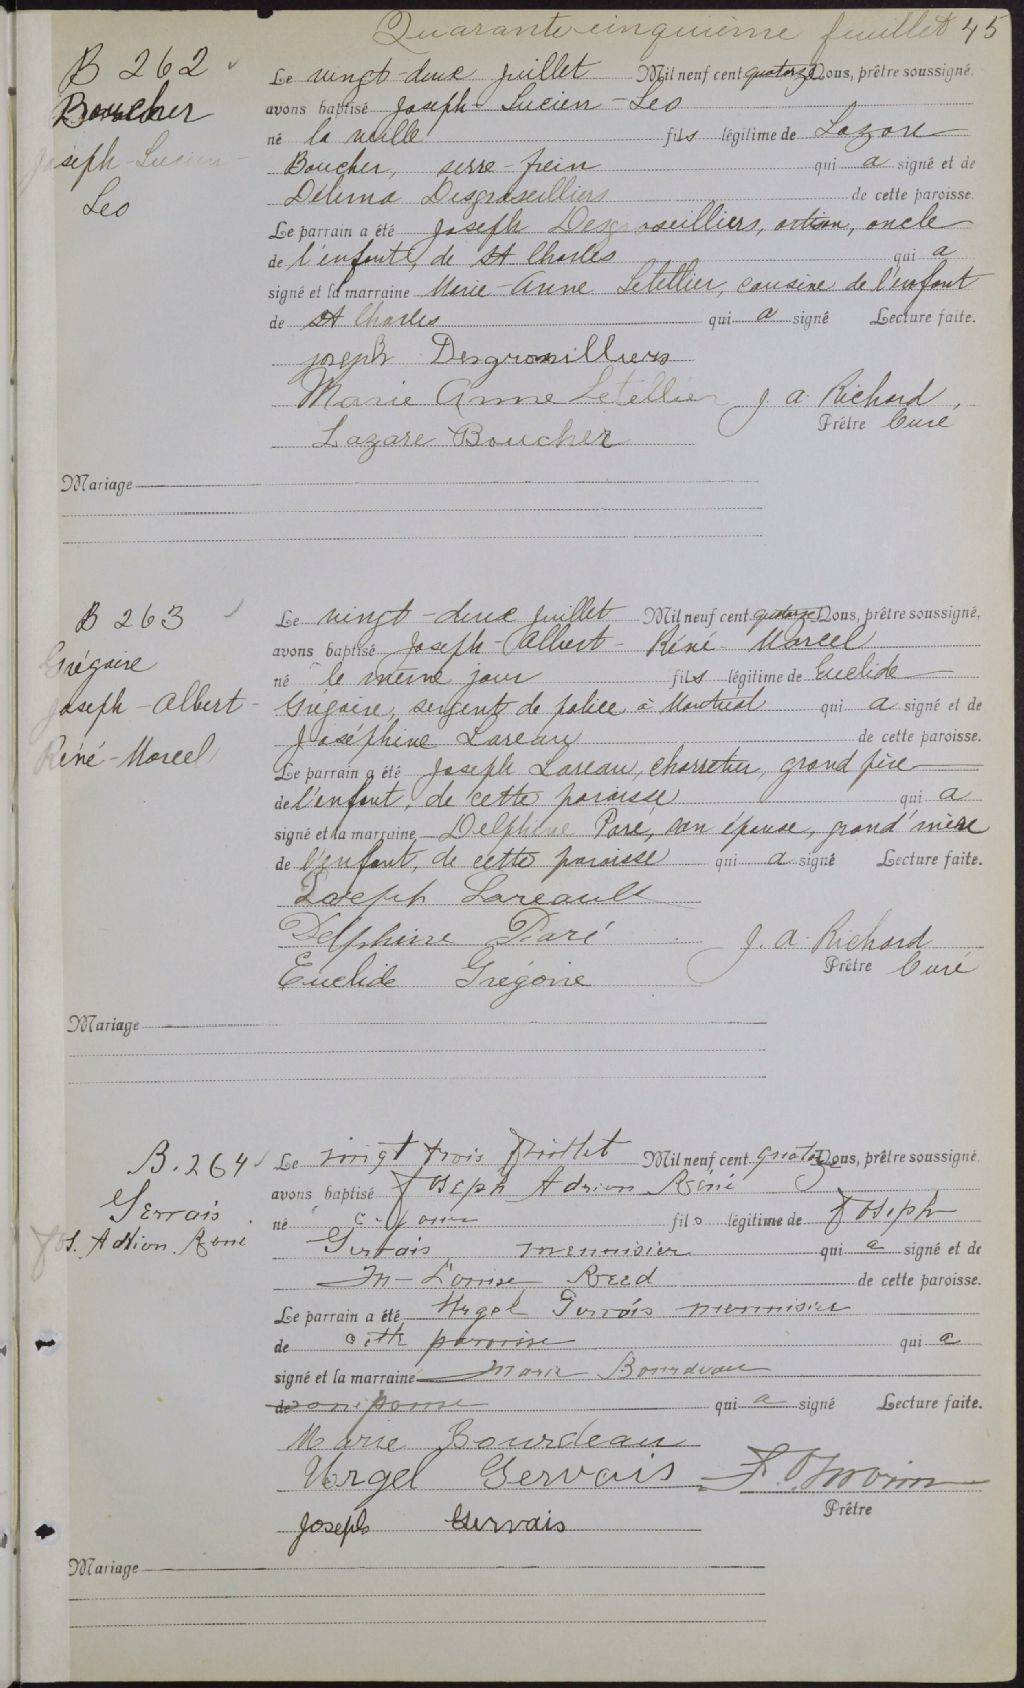 Quarante-cinquième feuillet 45
B 262
Boucher
Joseph-Lucien-
Leo
Le vingt-deux juillet Mil neuf cent quatorze Nous, prêtre soussigné,
avons baptisé Joseph-Lucien-Leo
né la veille fils légitime de Lazare
Boucher, serre-frein qui a signé et de
Délima Desgroseilliers de cette paroisse.
Le parrain a été Joseph Desgroseilliers, artisan, oncle
de l'enfant, de St Charles qui a
signé et la marraine Marie-Anne Letellier, cousine de l'enfant
de St Charles qui a signé Lecture faite.
joseph Desgrosilliers
Marie Anne Letellier J. A. Richard,
Lazare Boucher Prêtre Curé
Mariage
B 263
Grégoire
Joseph-Albert-
Réné-Marcel
Le vingt-deux juillet Mil neuf cent quatorze Nous, prêtre soussigné,
avons baptisé Joseph-Albert-Réné-Marcel
né le même jour fils légitime de Euclide
Grégoire, sergent de police à Montréal qui a signé et de
Joséphine Lareau de cette paroisse.
Le parrain a été Joseph Lareau, charretier, grand père
de l'enfant, de cette paroisse qui a
signé et la marraine Delphine Paré, son épouse, grand'mère
de l'enfant, de cette paroisse qui a signé Lecture faite.
Joseph Lareault
Delphine Paré J. A. Richard
Euclide Grégoire Prêtre Curé
Mariage
B. 264
Gervais
Jos. Adrien Réné
Le vingt trois juillet Mil neuf cent quatorze Nous, prêtre soussigné,
avons baptisé Joseph Adrien Réné
né c. jour fils légitime de Joseph
Gervais menuisier qui a signé et de
M-Louise Reed de cette paroisse.
Le parrain a été Urgel Gervais menuisier
de cette paroisse qui a
signé et la marraine Marie Bourdeau
de son épouse qui a signé Lecture faite.
Marie Bourdeau
Urgel Gervais
Joseph Gervais Prêtre
Mariage